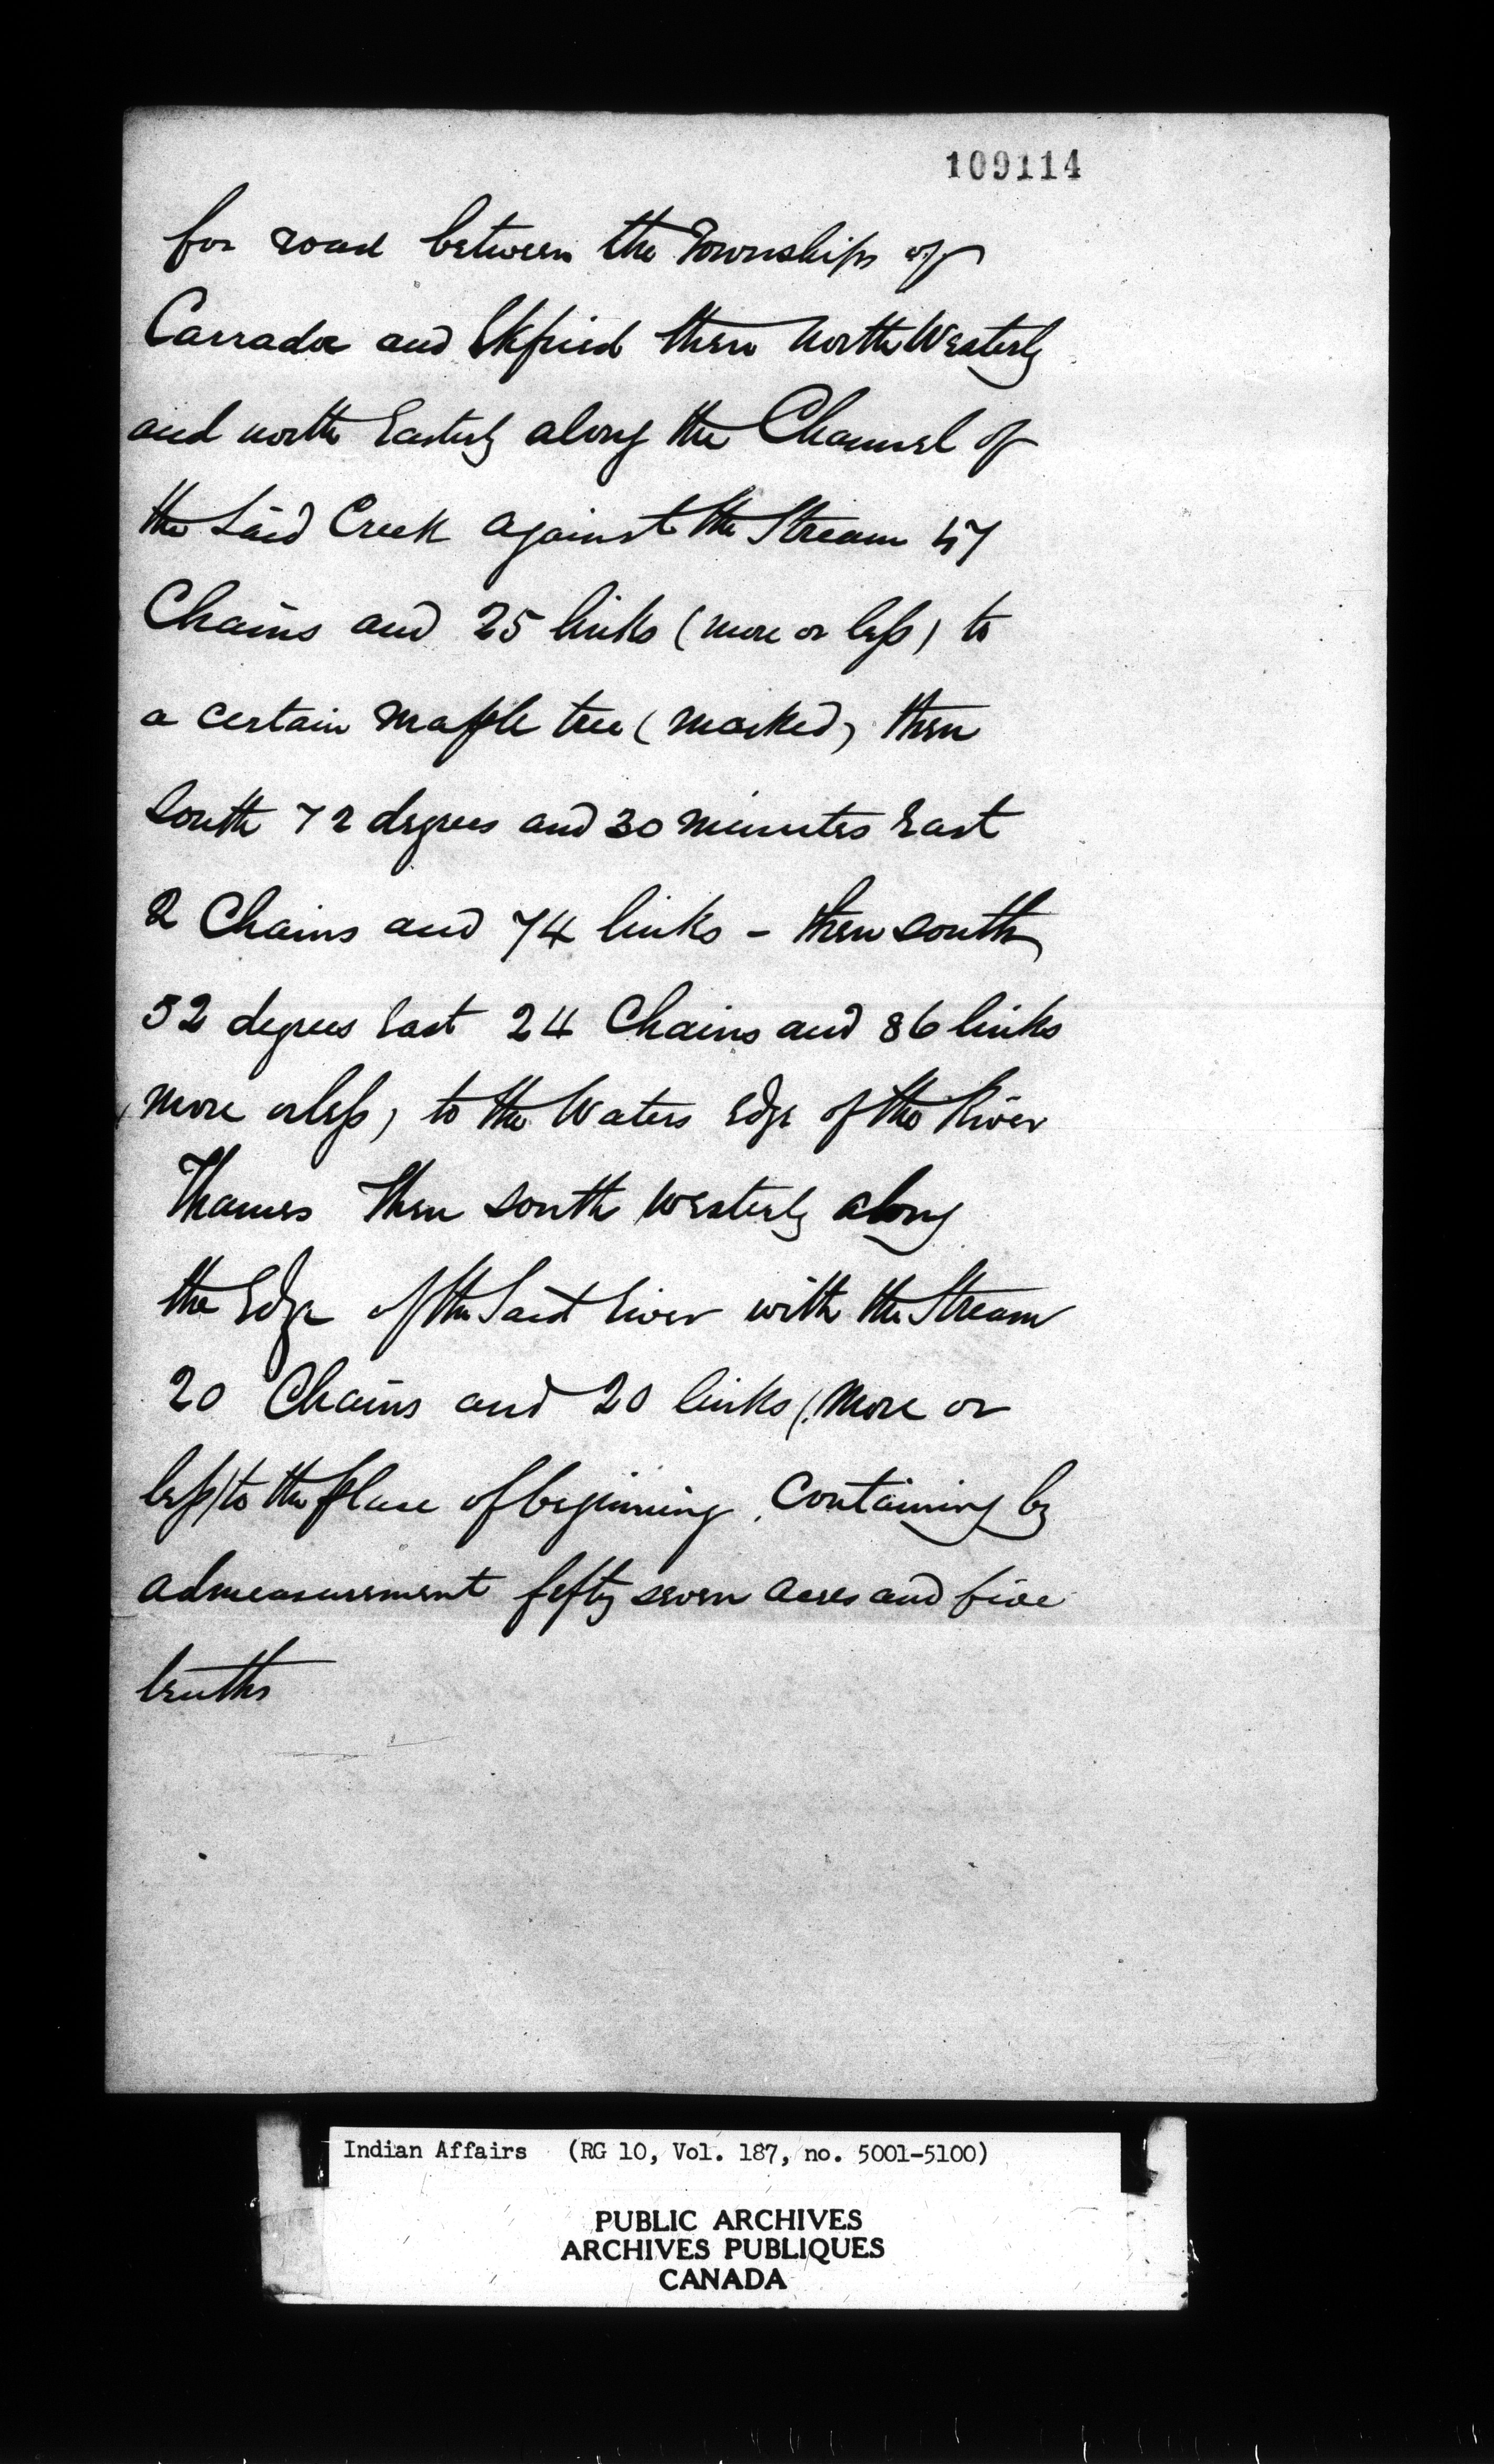 109114
for road between the Townships of
Carradoc and Ekfrid then north Westerly
and north Easterly along the Channel of
the Said Creek against the Stream 47
Chains and 25 links (more or less) to
a certain maple tree (marked) then
South 72 degrees and 30 minutes East
2 Chains and 74 links - then south
52 degrees East 24 Chains and 86 links
(more or less) to the Waters Edge of the River
Thames then south westerly along
the Edge of the Said River with the Stream
20 Chains and 20 links (more or
less) to the place of beginning. Containing by
admeasurement fifty seven acres and five
tenths
Indian Affairs (RG 10, Vol. 187, no. 5001-5100)
PUBLIC ARCHIVES
ARCHIVES PUBLIQUES
CANADA